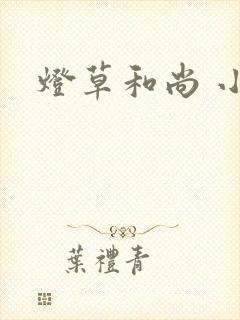 燈草和尚 小
葉禮青